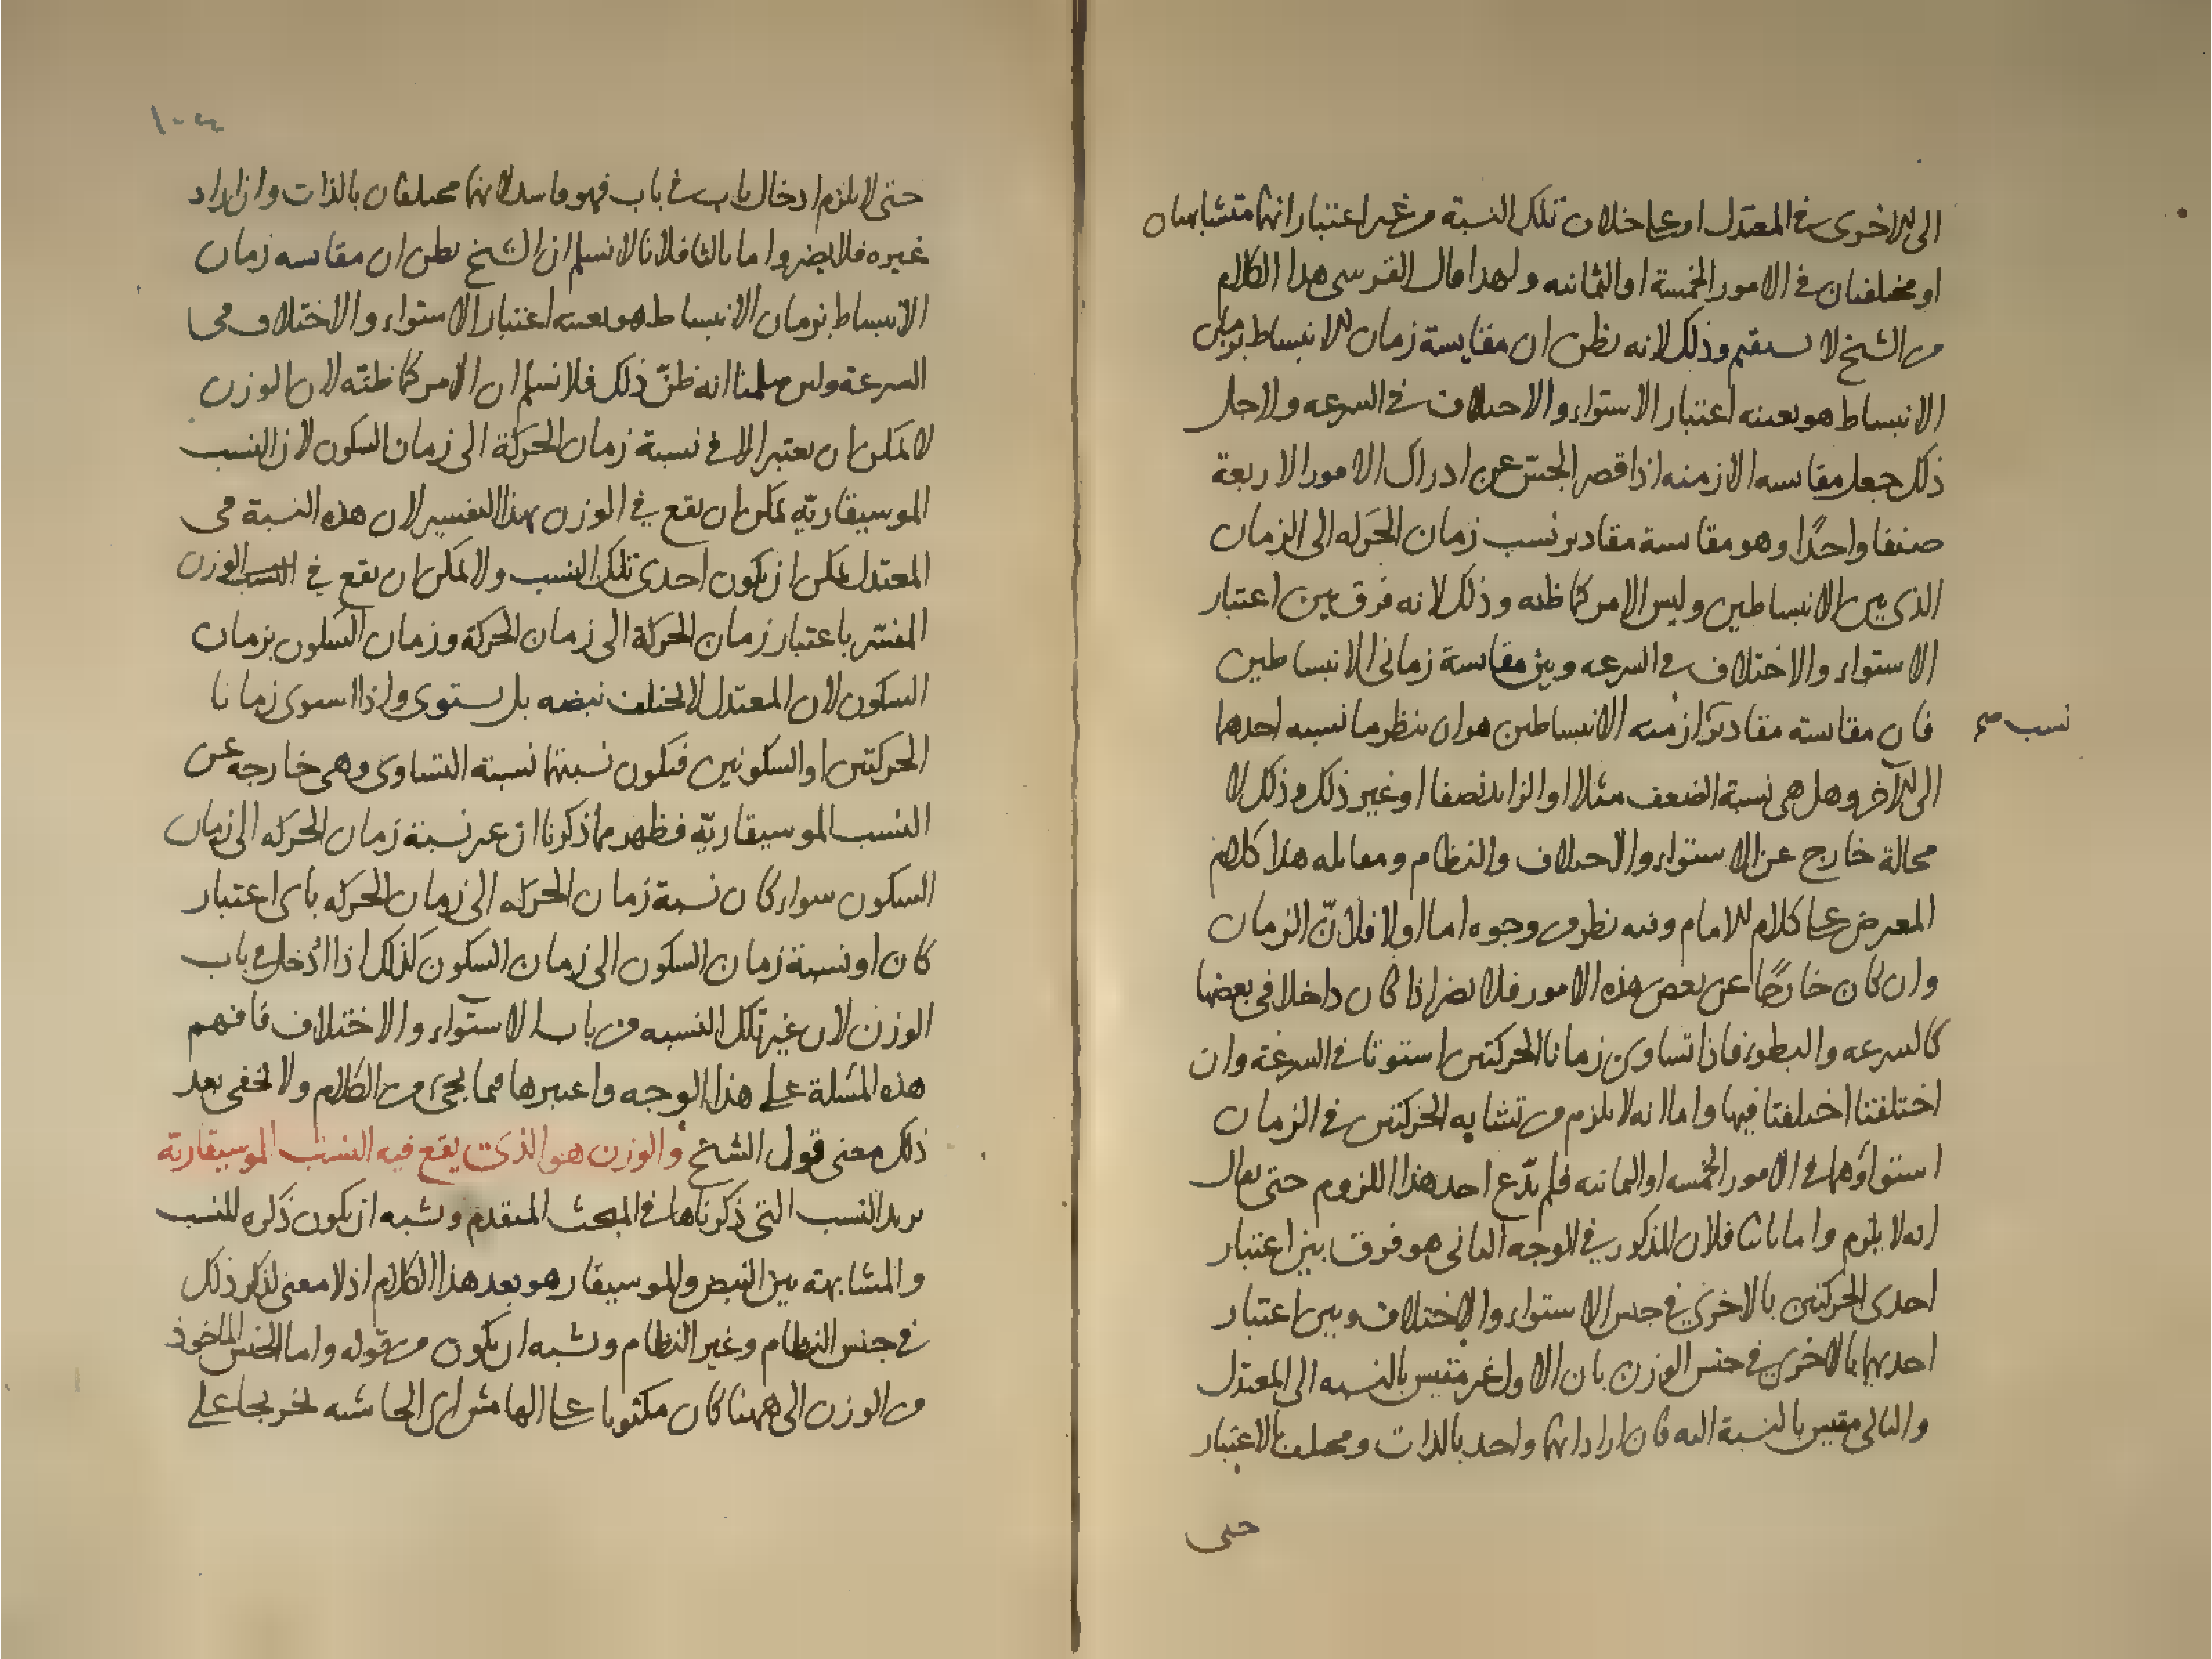 الى الاخرى في المعتدل او على خلاف تلك النسبة من غير اعتبار انهما متشابهان
او مختلفتان في الامور الخمسة او الثمانيه ولهذا قال القرسى هذا الكلام
من الشيخ لا يستقيم وذلك لانه يظن ان مقايسة زمان الانبساط بزمان
الانبساط هو بعينه اعتبار الاستواء والاختلاف في السرعه ولاجل
ذلك جعل مقايسه الازمنه اذا قصر الحسّ عن ادراك الامور الاربعة
صنفا واحدًا وهو مقايسة مقادير نسب زمان الحركه الى الزمان
الذي بين الانبساطين وليس الامر كما ظنه وذلك لانه فرق بين اعتبار
الاستواء والاختلاف في السرعه وبين مقايسة زمانى الانبساطين
فان مقايسة مقادير ازمنه الانبساطين هو ان ينظر ما نسبه احدهما
نسب صح
الى الآخر وهل هى نسبة الضعف مثلا او الزايد نصفا او غير ذلك وذلك لا
محالة خارج عن الاستواء والاختلاف والنظام ومقابله هذا كلام
المعترض على كلام الامام وفيه نظر من وجوه اما اولا فلانّ الزمان
وان كان خارجًا عن بعض هذه الامور فلا يضر اذا كان داخلا في بعضها
كالسرعه والبطوء فاذا تساوى زمانا الحركتين استوتا في السرعة وان
اختلفتا اختلفتا فيها واما انه لا يلزم من تشابه الحركتين في الزمان
استواؤهما في الامور الخمسه او الثمانيه فلم يدّع احد هذا اللزوم حتى يقال
انه لا يلزم واما ثانيا فلان المذكور في الوجه الثانى هو فرق بين اعتبار
احدى الحركتين بالاخرى في جنس الاستواء والاختلاف وبين اعتبار
احديهما بالاخرى في جنس الوزن بان الاول غير مقيس بالنسبه الى المعتدل
والثانى مقيس بالنسبة اليه فان اراد انهما واحد بالذات ومختلف بالاعتبار
حتى
حتى لا يلزم ادخال باب في باب فهو فاسد لانهما مختلفان بالذات وان اراد
غيره فلا يضر واما ثالثا فلانا لا نسلم ان الشيخ يظن ان مقايسه زمان
الانبساط بزمان الانبساط هو بعينه اعتبار الاستواء والاختلاف في
السرعة ولئن سلمنا انه ظنّ ذلك فلا نسلم ان الامر كما ظنّه لان الوزن
لا يمكن ان يعتبر الا في نسبة زمان الحركة الى زمان السكون لان النسب
الموسيقاريّه يمكن ان يقع في الوزن بهذا التفسير لان هذه النسبة في
المعتدل يمكن ان يكون احدى تلك النسب ولا يمكن ان يقع في الوزن
المفسّر باعتبار زمان الحركة الى زمان الحركة وزمان السكون بزمان
السكون لان المعتدل لا يختلف نبضه بل يستوى واذا استوى زمانا
الحركتين او السكونين فتكون نسبتهما نسبة التساوى وهى خارجه عن
النسب الموسيقاريّة فظهر مما ذكرنا ان غير نسبة زمان الحركه الى زمان
السكون سواء كان نسبة زمان الحركه الى زمان الحركه باى اعتبار
كان او نسبة زمان السكون الى زمان السكون كذلك اذا ادخل في باب
الوزن لان غير تلك النسبه من باب الاستواء والاختلاف فافهم
هذه المسئلة على هذا الوجه واعتبرها فيما يجىء من الكلام ولا يخفى بعد
ذلك معنى قول الشيخ والوزن هو الذى يقع فيه النسب الموسيقاريّة
يريد النسب التى ذكرناها في المبحث المتقدم ويشبه ان يكون ذكره للنسب
والمشابهة بين النبض والموسيقار هو بعد هذا الكلام اذ لا معنى لذكر ذلك
في جنس النظام وغير النظام ويشبه ان يكون من قوله واما الجنس الماخوذ
من الوزن الى ههنا كان مكتوبا على الهامش اى الحاشيه تخريجا على